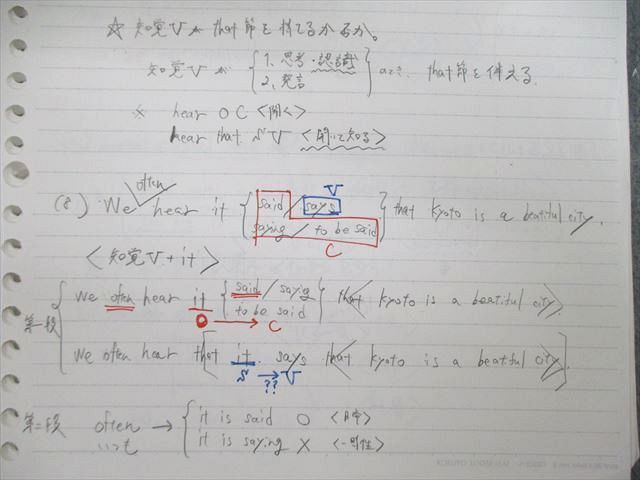 ☆ 知覚V が that節を持てるか否か。
知覚V が { 1, 思考・認識 } のとき、that節を伴える。
2, 発言
※ hear O C <聞く>
hear that S V <聞いて知る>
often V
(8) We hear it { said / says } that kyoto is a beatiful city.
saying / to be said
C
<知覚V + it>
第一段 { we often hear it { said / saying } that kyoto is a beatiful city>.
to be said
O → C
we often hear that [ it says that kyoto is a beatiful city>].
S → V
??
第二段 often → { it is said ○
いつも it is saying × <一時性>